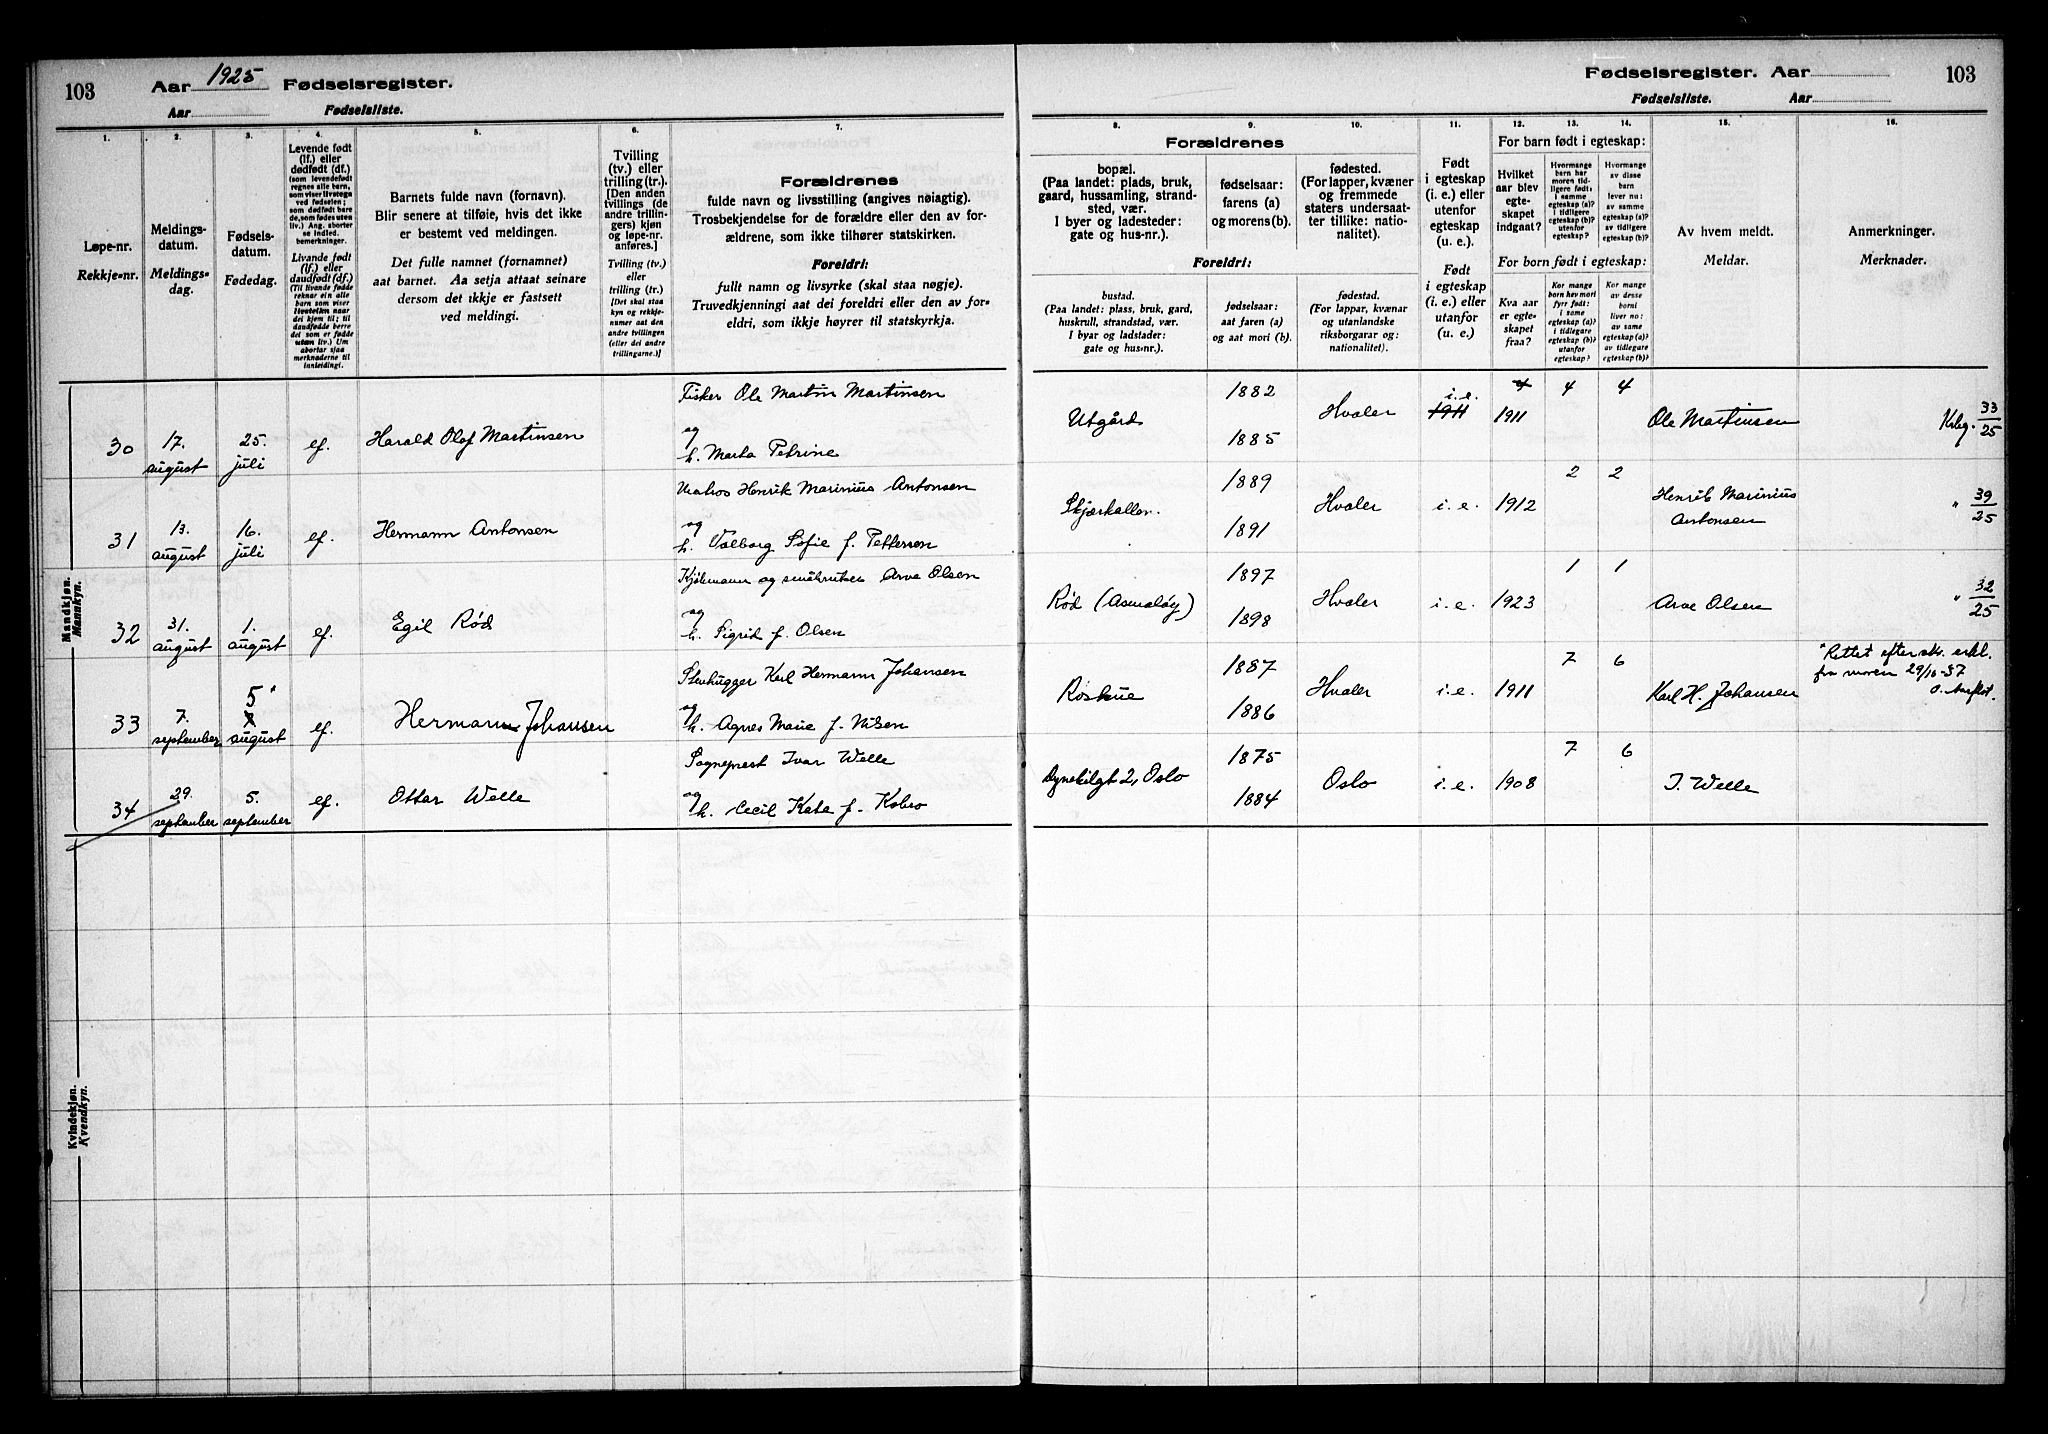 103
Aar 1925 Fødselsregister.
Aar Fødselsliste.
1.
2.
3.
4.
5.
6.
7.
Løpe-nr.
Rekkje-nr.
Meldings-
datum.
Meldings-
dag.
Fødsels-
datum.
Fødedag.
Levende født
(lf.) eller
dødfødt (df.)
(som levendefødt
regnes alle barn,
som viser livstegn
ved fødselen;
som dødfødt bare
de, som fødes uten
liv.) Ang. aborter
se indled.
bemerkninger.
Livande fødd
(lf.) eller
daudfødt (df.)
(Til livande fødde
reknar ein alle
born som viser
livsteikn naar
dei kjem til; til
daudfødde berre
dei som er fødde
utan liv.) Um
abortar sjaa
merknaderne til
innleiding).
Barnets fulde navn (fornavn).
Blir senere at tilføie, hvis det ikke
er bestemt ved meldingen.
Det fulle namnet (fornamnet)
aat barnet. Aa setja attaat seinare
dersom det ikkje er fastsett
ved meldingi.
Tvilling
(tv.) eller
trilling (tr.).
[Den anden
tvillings (de
andre trillin-
gers) kjøn
og løpe-nr.
anføres.]
Tvilling (tv.)
eller
trilling (tr.)
[Det skal staa
kyn og rekkje-
numer aat den
andre tvillingen
(eller dei andre
trillingarne.)]
Forældrenes
fulde navn og livsstilling (angives nøiagtig).
Trosbekjendelse for de forældre eller den av for-
ældrene, som ikke tilhører statskirken.
Foreldri:
fullt namn og livsyrke (skal staa nøgje).
Truvedkjenningi aat dei foreldri eller den av for-
eldri, som ikkje høyrer til statskyrkja.
Mandkjøn.
Mannkyn.
30
17.
august
25.
juli
lf.
Harald Olaf Martinsen
Fisker Ole Martin Martinsen
og
h. Marta Petrine
31
13.
august
16.
juli
lf.
Hermann Antonsen
Matros Henrik Marinius Antonsen
og
h. Valborg Sofie f. Pettersen
32
31.
august
1.
august
lf.
Egil Rød
Arve Olsen
og
h. Sigrid f. Olsen
33
7.
september
5
august
lf.
Hermann Johansen
Stenhugger Karl Hermann Johansen
og
h. Agnes Marie f. Nilsen
34
29.
september
5.
september
lf.
Ottar Welle
Sogneprest Ivar Welle
og
h. Cecil Kate f. Kobro
Kvindekjøn.
Kvendkyn.
Fødselsregister. Aar
103
Fødselsliste. Aar
8.
9.
10.
11.
12.
13.
14.
15.
16.
Forældrenes
bopæl.
(Paa landet: plads, bruk,
gaard, hussamling, strand-
sted, vær.
I byer og ladesteder:
gate og hus-nr.).
fødselsaar:
farens (a)
og morens (b).
fødested.
(For lapper, kvæner
og fremmede
staters undersaat-
ter tillike: natio-
nalitet).
Foreldri:
bustad.
(Paa landet: plass, bruk, gard,
huskrull, strandstad, vær.
I byar og ladstader:
gate og hus-nr.).
fødselsaar:
aat faren (a)
og aat mori (b).
fødestad.
(For lappar, kvænar
og utanlandske
riksborgarar og:
nationalitet).
Født
i egteskap
(i. e.) eller
utenfor
egteskap
(u. e.).
Født
i egteskap
(i. e.) eller
utanfor
(u. e.).
For barn født i egteskap:
Hvilket
aar blev
egte-
skapet
indgaat?
Hvormange
barn har
moren tid-
ligere født:
i samme
egteskap (a)?
i tidligere
egteskap (b)?
utenfor
egteskap?
Hvormange
av disse
barn
lever nu:
av samme
egteskap (a)?
av tidligere
egteskap (b)?
For born født i egteskap:
Kva aar
er egte-
skapet
fraa?
Kor mange
born hev mori
fyrr født:
i same
egteskap (a)?
i tidlegare
egteskap (b)?
utanfor
egteskap?
Kor mange
av desse
borni
liver no:
av same
egteskap (a)?
av tidlegare
egteskap (b)?
Av hvem meldt.
Meldar.
Anmerkninger.
Merknader.
Utgård
1882
1885
Hvaler
i. e.
1911
4
1911
4
4
Ole Martinsen
33
25
Skjærhallen.
1889
1891
Hvaler
i. e.
1912
2
2
Henrik Marinius
Antonsen
"
39
25
Rød (Asmaløy)
1897
1898
Hvaler
i. e.
1923
1
1
Arve Olsen
"
32
25
Røshue
1887
1886
Hvaler
i. e.
1911
7
6
Karl H. Johansen
Rettet efter erkl.
fra moren 29/10-37
Dynekilgt 2, Oslo
1875
1884
Oslo
i. e.
1908
7
6
I. Welle